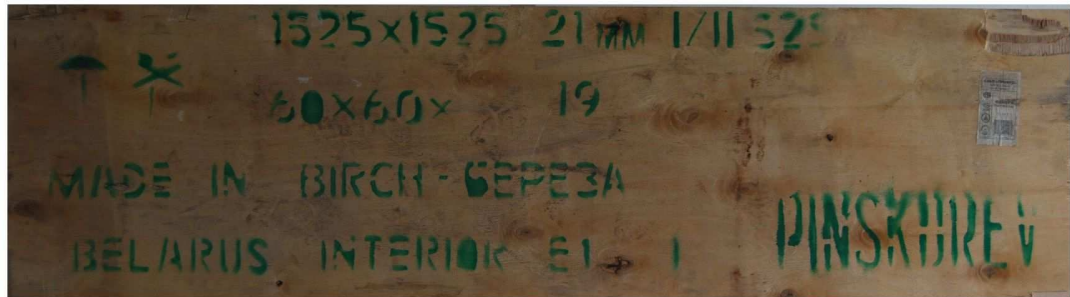 1525×1525 21мм I/II S2S
60×60× 19
MADE IN BIRCH-БЕРЕЗА
BELARUS INTERIOR E1 1
PINSKDREV